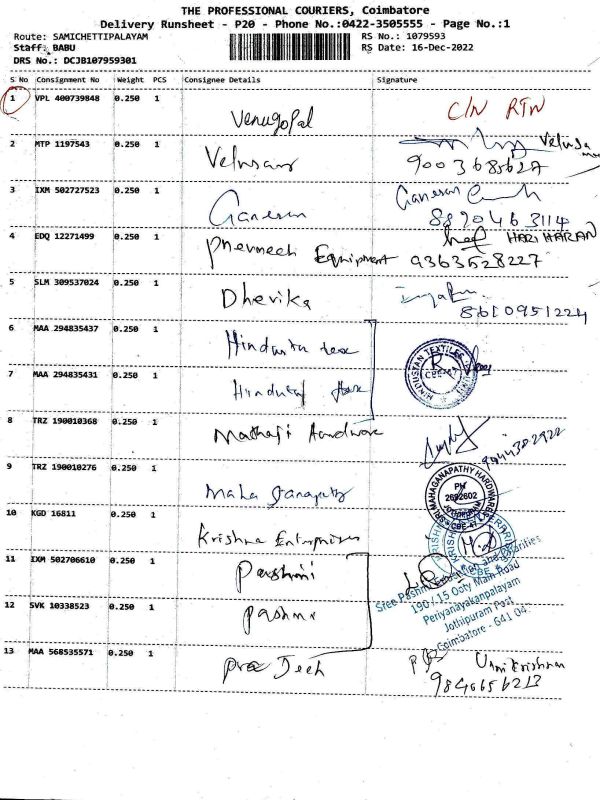 THE PROFESSIONAL COURIERS, Coimbatore
Delivery Runsheet - P20 - Phone No.:0422-3505555 - Page No.:1
Route: SAMICHETTIPALAYAM RS No.: 1079593
Staff: BABU RS Date: 16-Dec-2022
DRS No.: DCJB107959301
S No Consignment No Weight PCS Consignee Details Signature
1 VPL 400739848 0.250 1 Venugopal C/N RTN
2 MTP 1197543 0.250 1 Velusamy
9003685627
3 IXM 502727523 0.250 1 Ganesan Ganesan
8890463114
4 EDQ 12271499 0.250 1 Pnevmech Equipment HARI HARAN
9363528227
5 SLM 309537024 0.250 1 Dhevika
8610951224
6 MAA 294835437 0.250 1 Hindusta tex
HINDUSTAN TEXTILES
CBE-47
7 MAA 294835431 0.250 1
8 TRZ 190010368 0.250 1 Mathaji Hardware
9 TRZ 190010276 0.250 1 Maha Ganapathy
SRI MAHAGANAPATHY HARDWARES
PH
2692602
CBE-47
10 KGD 16811 0.250 1 Krishna Enterprises
11 IXM 502706610 0.250 1 Pashmi
Sree Pashmi
190 / 15 Ooty Main Road
Periyanayakanpalayam
Jothipuram Post
Coimbatore - 641 047
12 SVK 10338523 0.250 1 Pashmi
13 MAA 568535571 0.250 1 Pra Tech Unnikrishnan
9846656213